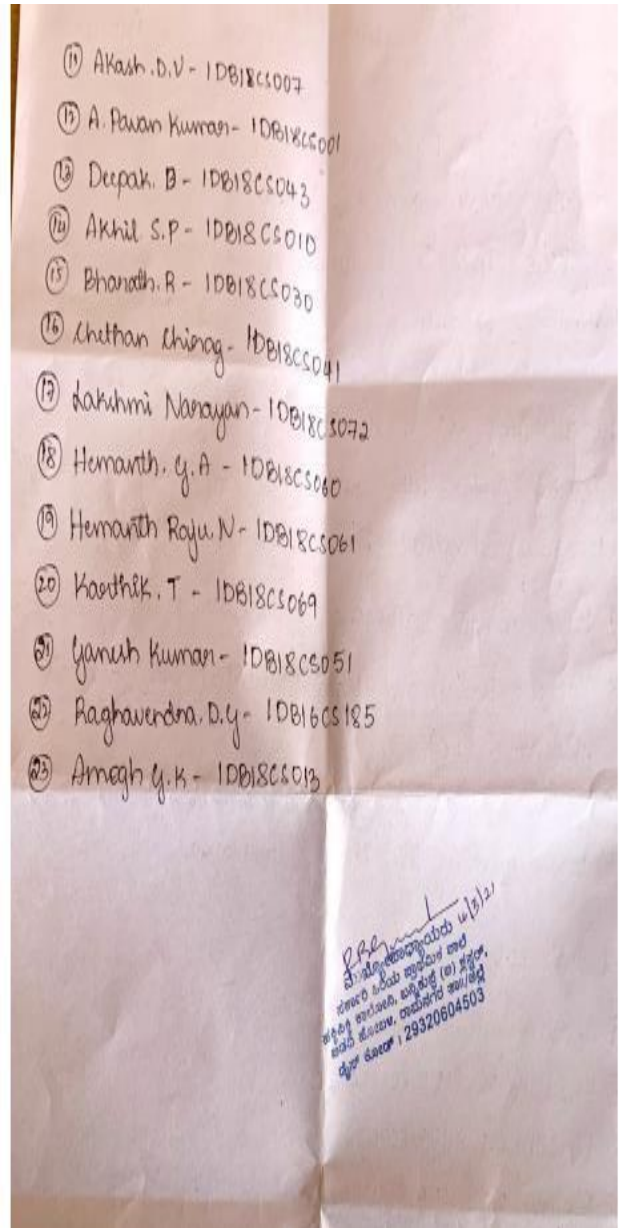 11 Akash.D.V - 1DB18CS007
12 A.Pavan Kumar - 1DB18CS001
13 Deepak. B - 1DB18CS043
14 Akhil S.P - 1DB18CS010
15 Bharath.R - 1DB18CS030
16 Chethan Chirag - 1DB18CS041
17 Lakshmi Narayan - 1DB18CS072
18 Hemanth. G.A - 1DB18CS060
19 Hemanth Raju.N - 1DB18CS061
20 Karthik.T - 1DB18CS069
21 Ganesh Kumar - 1DB18CS051
22 Raghavendra.D.G - 1DB16CS185
23 Amogh G.K - 1DB18CS013
ಮುಖ್ಯೋಪಾಧ್ಯಾಯರು
ಸರ್ಕಾರಿ ಹಿರಿಯ ಪ್ರಾಥಮಿಕ ಶಾಲೆ
ಕಾಲೋನಿ,
ಬಿಡದಿ ಹೋಬಳಿ, ರಾಮನಗರ ತಾ/ಜಿಲ್ಲೆ
ಡೈಸ್ ಕೋಡ್ : 29320604503